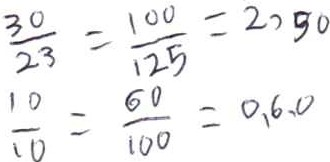 30/23 = 100/125 = 2,50
10/10 = 60/100 = 0,6,0